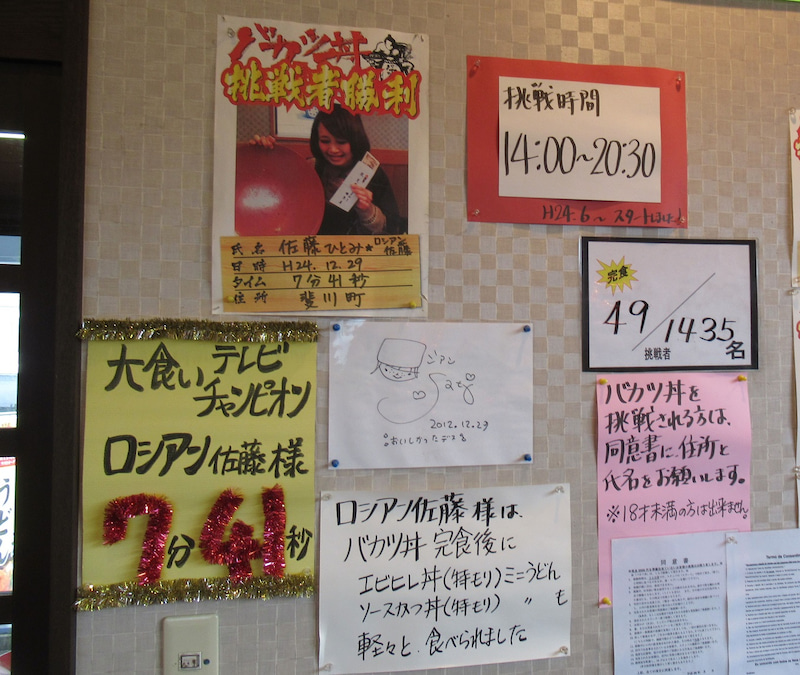 バカツ丼
挑戦者勝利
氏名 佐藤ひとみ★ロシアン佐藤
日時 H24.12.29
タイム 7分41秒
住所 斐川町
挑戦時間
14:00~20:30
H24.6~スタートしました!
完食
49/1435名
挑戦者
大食いテレビ
チャンピオン
ロシアン佐藤様
7分41秒
2012.12.29
おいしかったデス
バカツ丼を
挑戦される方は、
同意書に住所と
氏名をお願いします。
※18才未満の方は出来ません。
ロシアン佐藤様は、
バカツ丼完食後に
エビヒレ丼(特もり)ミニうどん
ソースかつ丼(特もり) 〃 も
軽々と、食べられました
同意書
うどん